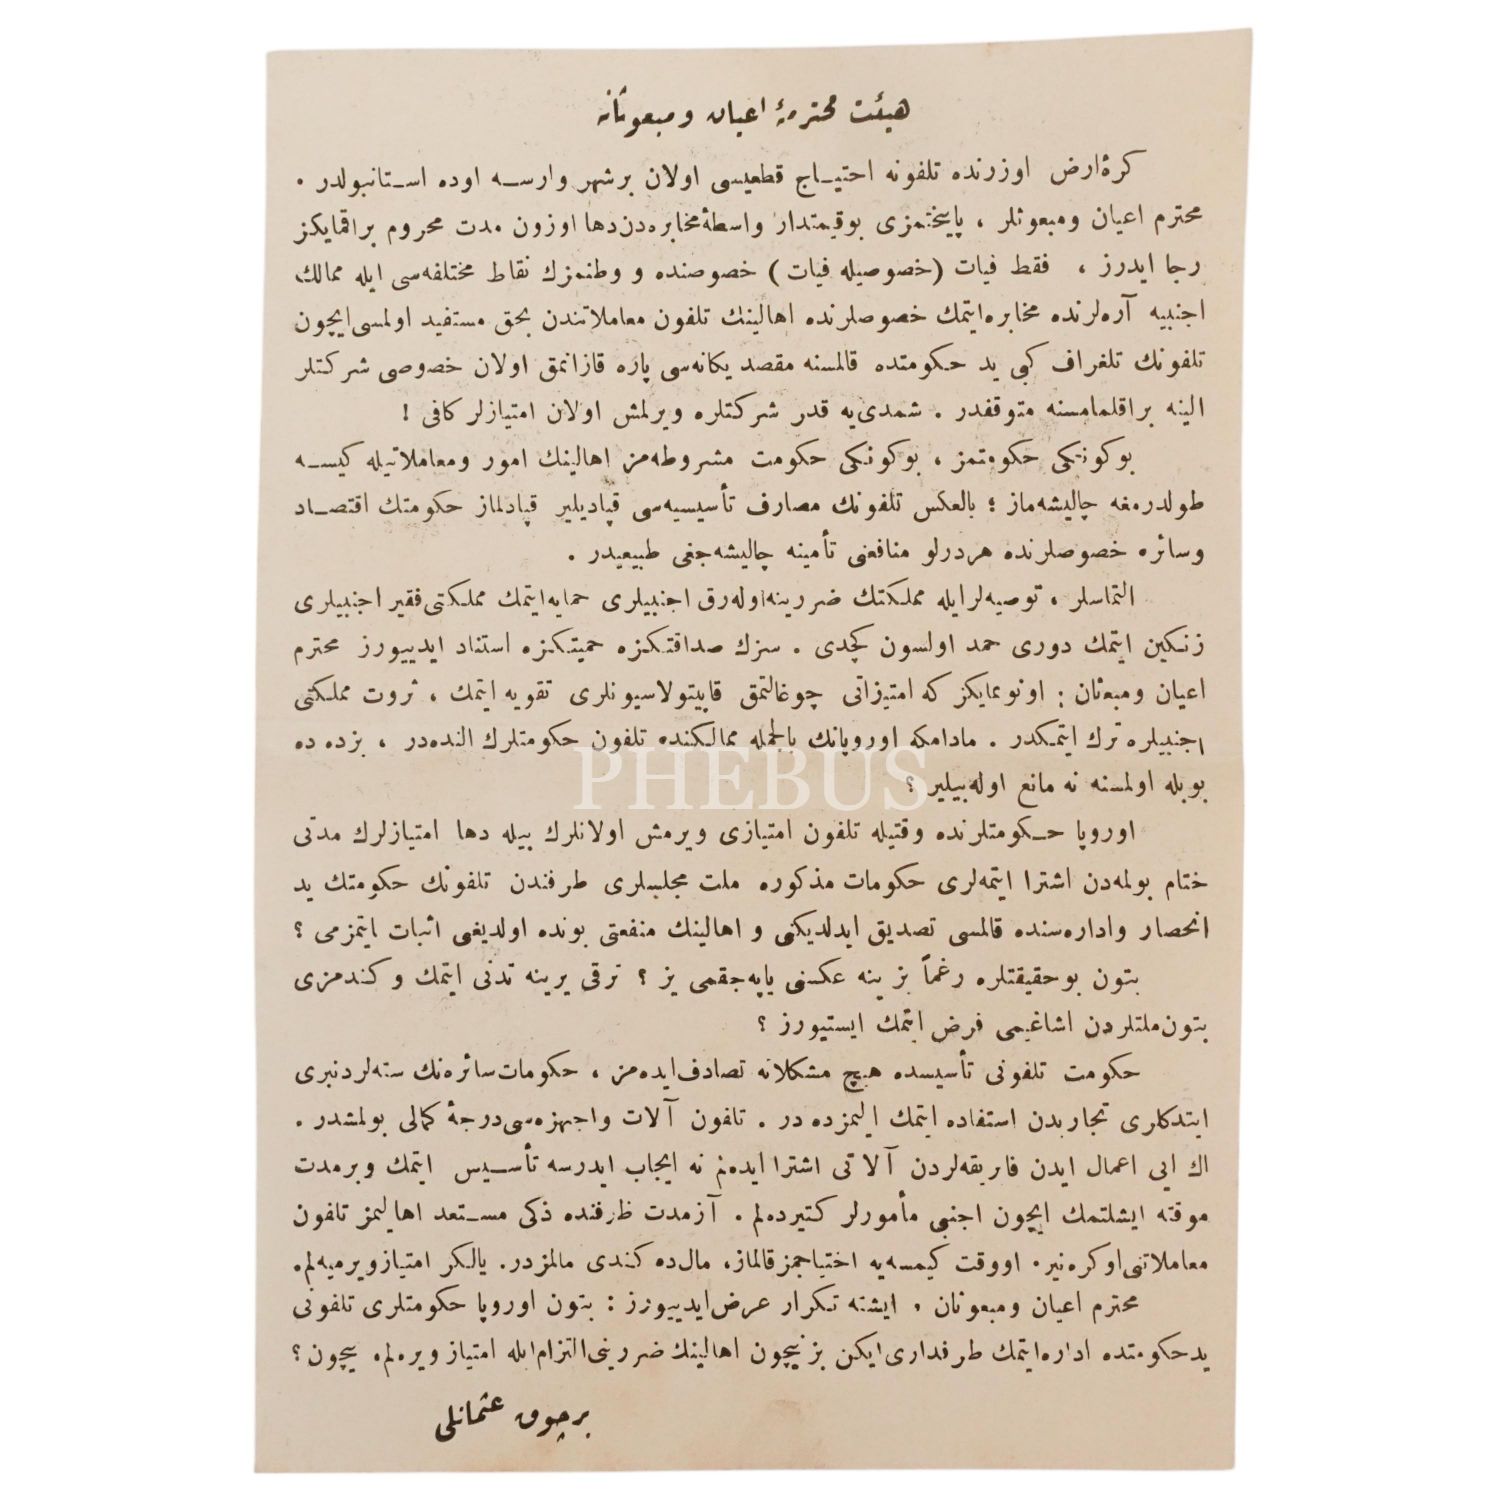 هیئت محترمهٔ اعیان و مبعوثانه
کرهٔ ارض اوزرنده تلفونه احتیاج قطعیسی اولان برشهر وارسه اوده استانبولدر .
محترم اعیان ومبعوثلر ، پایختمزی بوقیمتدار واسطهٔ مخابره‌دن دها اوزون مدت محروم براقمایکز
رجا ایدرز ، فقط فیات (خصوصیله فیات) خصوصنده و وطنمزك نقاط مختلفه‌سی ایله ممالك
اجنبیه آره‌لرنده مخابره ایتمك خصوصلرنده اهالینك تلفون معاملاتندن بحق مستفید اولمسی ایچون
تلفونك تلغراف کبی ید حکومتده قالمسنه مقصد یکانه‌سی پاره قازانمق اولان خصوصی شرکتلر
الینه براقلمامسنه متوقفدر . شمدی‌یه قدر شرکتلره ویرلمش اولان امتیازلر کافی !
بوکونکی حکومتمز ، بوکونکی حکومت مشروطه‌مز اهالینك امور ومعاملاتیله کیسه
طولدرمغه چالیشه‌ماز ؛ بالعکس تلفونك مصارف تأسیسیه‌سی قپادیلیر قپادلماز حکومتك اقتصاد
وسائره خصوصلرنده هردرلو منافعنی تأمینه چالیشه‌جغی طبیعیدر .
التماسلر ، توصیه‌لر ایله مملکتك ضررینه اوله‌رق اجنبیلری حمایه ایتمك مملکتی فقیر اجنبیلری
زنکین ایتمك دوری حمد اولسون کچدی . سزك صداقتکزه حمیتکزه استناد ایدییورز محترم
اعیان ومبعثان : اونوتمایکز که امتیزاتی چوغالتمق قاپیتولاسیونلری تقویه ایتمك ، ثروت مملکتی
اجنبیلره ترك ایتمکدر . مادامکه اوروپانك بالجمله ممالکنده تلفون حکومتلرك النده‌در ، بزده ده
بویله اولمسنه نه مانع اوله‌بیلیر ؟
PHEBUS
اوروپا حکومتلرنده وقتیله تلفون امتیازی ویرمش اولانلرك بیله دها امتیازلرك مدتی
ختام بولمه‌دن اشترا ایتمه‌لری حکومات مذکوره ملت مجلسلری طرفندن تلفونك حکومتك ید
انحصار واداره‌سنده قالمسی تصدیق ایدلدیکنی و اهالینك منفعتی بونده اولدیغی اثبات ایتمزمی ؟
بتون بوحقیقتلره رغماً بز ینه عکسنی یاپه‌جقمی یز ؟ ترقی یرینه تدنی ایتمك و کندمزی
بتون ملتلردن اشاغیمی فرض ایتمك ایستیورز ؟
حکومت تلفونی تأسیسده هیچ مشکلاته تصادف ایده‌مز ، حکومات سائره‌نك سنه‌لردنبری
ایتدکلری تجاربدن استفاده ایتمك الیمزده در . تلفون آلات واجهزه‌سی درجهٔ کمالی بولمشدر .
اك ایی اعمال ایدن فابریقه‌لردن آلاتی اشترا ایده‌لم نه ایجاب ایدرسه تأسیس ایتمك وبرمدت
موقته ایشلتمك ایچون اجنبی مأمورلر کتیرده‌لم . آزمدت ظرفنده ذکی مستعد اهالیمز تلفون
معاملاتنی اوکره‌نیر . اووقت کیمسه‌یه احتیاجمز قالماز ، مال‌ده کندی مالمزدر . یالکز امتیاز ویرمیه‌لم .
محترم اعیان ومبعوثان ، ایشته تکرار عرض ایدییورز : بتون اوروپا حکومتلری تلفونی
ید حکومتده اداره ایتمك طرفداری ایکن بز نیچون اهالینك ضررینی التزام ایله امتیاز ویره‌لم . نیچون ؟
برچوق عثمانلی